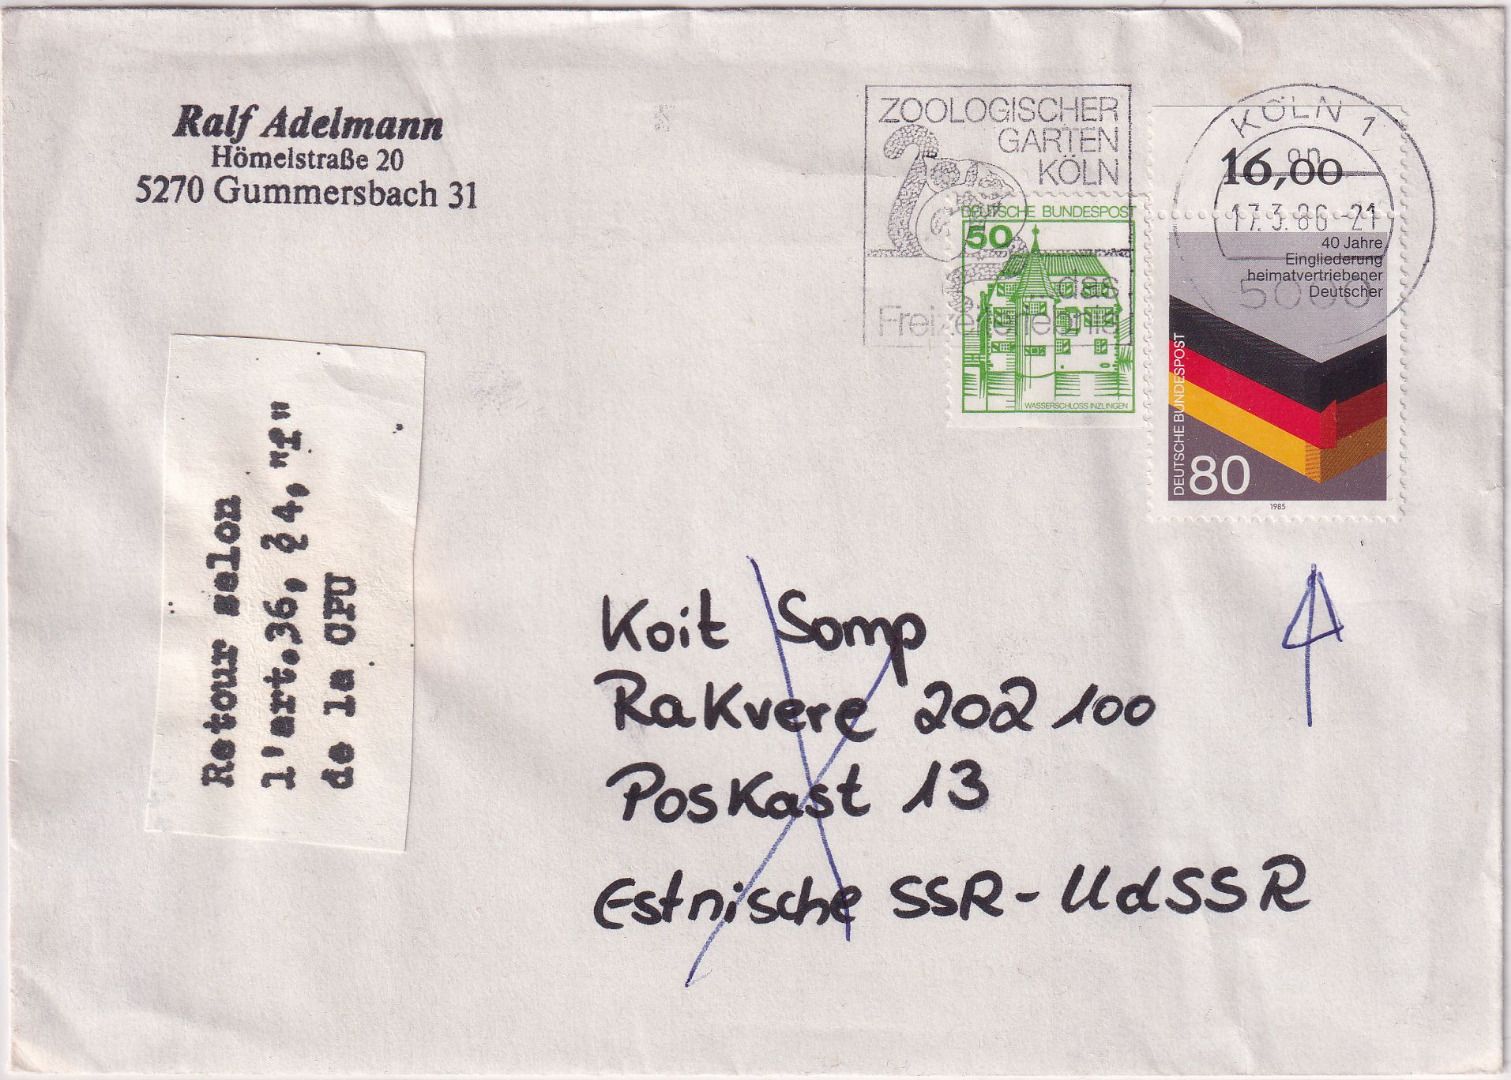 Ralf Adelmann
Hömelstraße 20
5270 Gummersbach 31
ZOOLOGISCHER
GARTEN
KÖLN
das
Freizeiterlebnis
KÖLN 1
17.3.86-21
5000
DEUTSCHE BUNDESPOST
50
WASSERSCHLOSS INZLINGEN
16,00
40 Jahre
Eingliederung
heimatvertriebener
Deutscher
DEUTSCHE BUNDESPOST
80
1985
Retour selon
l'art.36, § 4, "f"
de la CPU
Koit Somp
Rakvere 202 100
Poskast 13
Estnische SSR-UdSSR